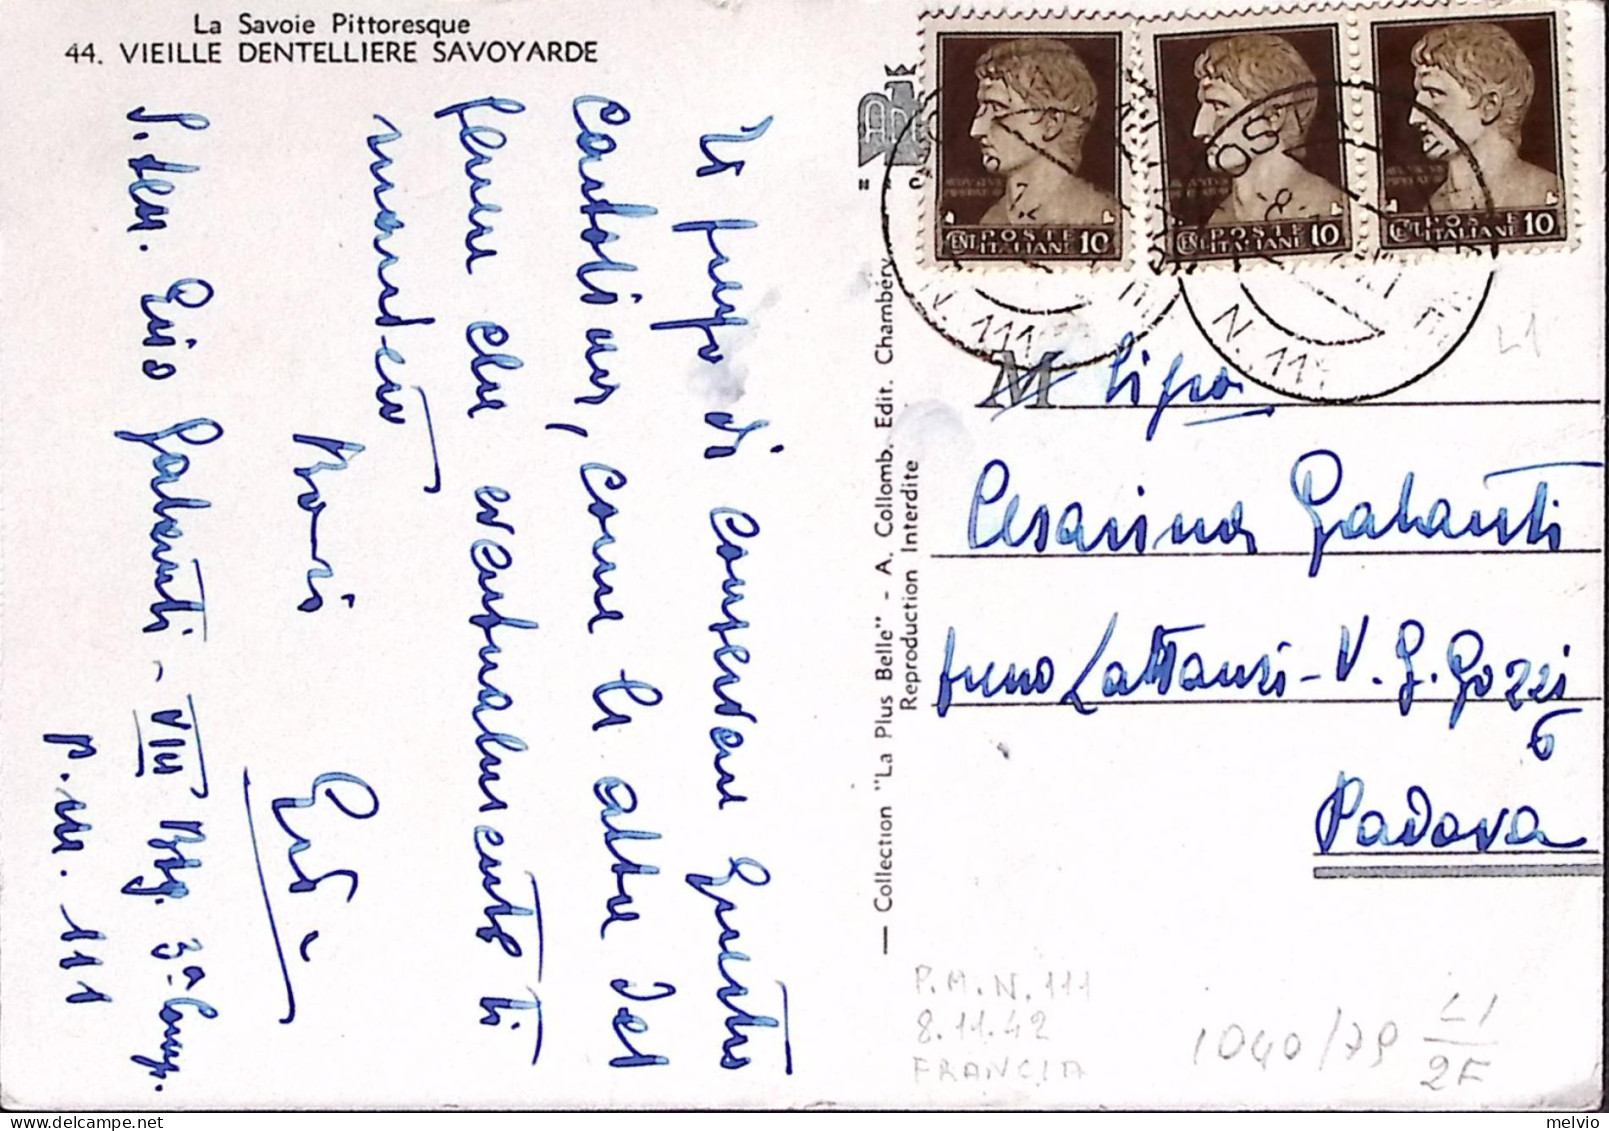 La Savoie Pittoresque
44. VIEILLE DENTELLIERE SAVOYARDE
Ti prego di conservare queste
Cartoline, come le altre del
genere che eventualmente ti
manderò
Baci
S. Ten. Galanti - VIII Btg. 3ª Comp.
P. M. 111
— Collection "La Plus Belle" - A. Collomb. Edit. Chambéry
Reproduction Interdite
CENT POSTE ITALIANE 10
CENT POSTE ITALIANE 10
CENT POSTE ITALIANE 10
N. 111
N. 111
M
Cesarina Galanti
Lattanzi - V. G. Gozzi
6
Padova
P.M.N. 111
8.11.42
FRANCIA
1040/79 L1
2F
L1
melvio